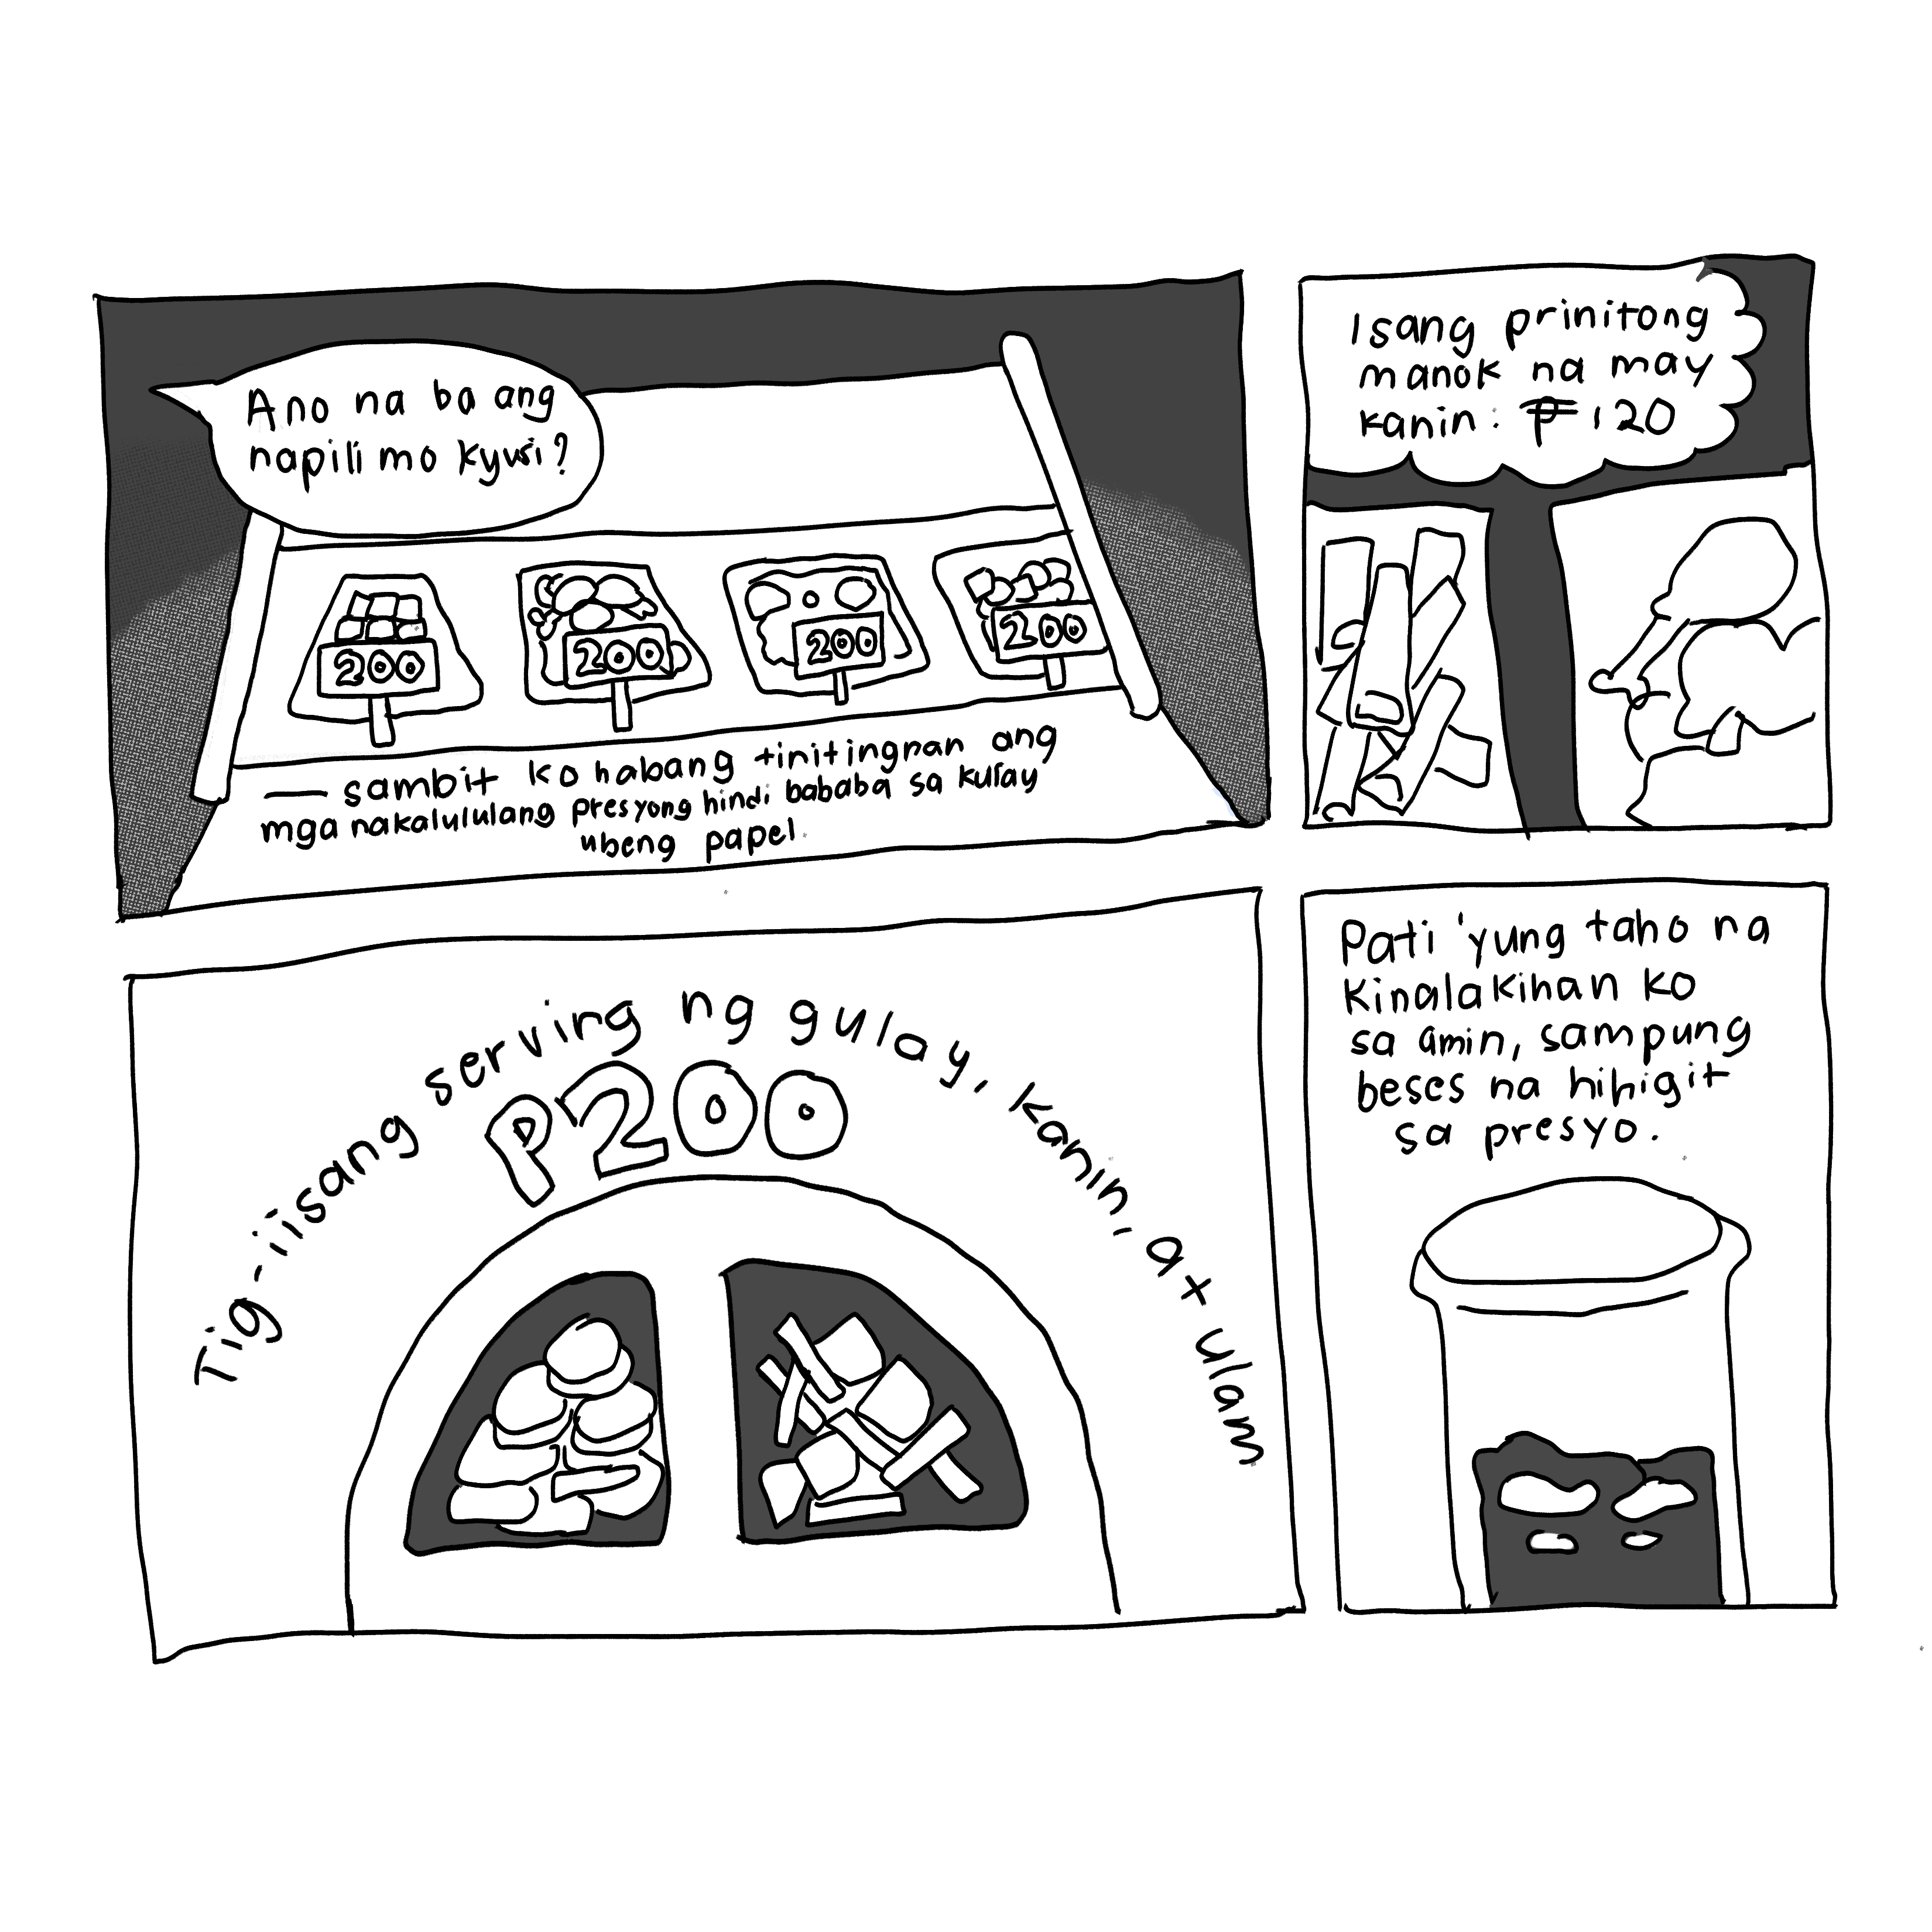 Ano na ba ang
napili mo kyusi?
200
200
200
200
— sambit ko habang tinitingnan ang
mga nakalululang presyong hindi bababa sa kulay
ubeng papel.
Isang prinitong
manok na may
kanin: ₱120
Tig-iisang serving ng gulay, kanin, at ulam
P200
Pati 'yung taho na
kinalakihan ko
sa amin, sampung
beses na hihigit
sa presyo.